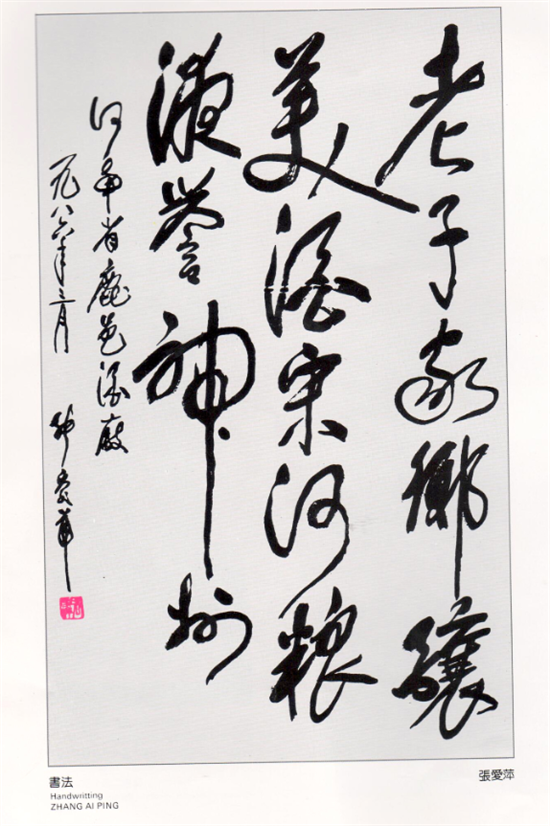 老子家鄉釀
美酒宋河粮
液誉神州
河南省鹿邑酒廠
一九八六年三月 張愛萍
書法
Handwritting
ZHANG AI PING
張愛萍